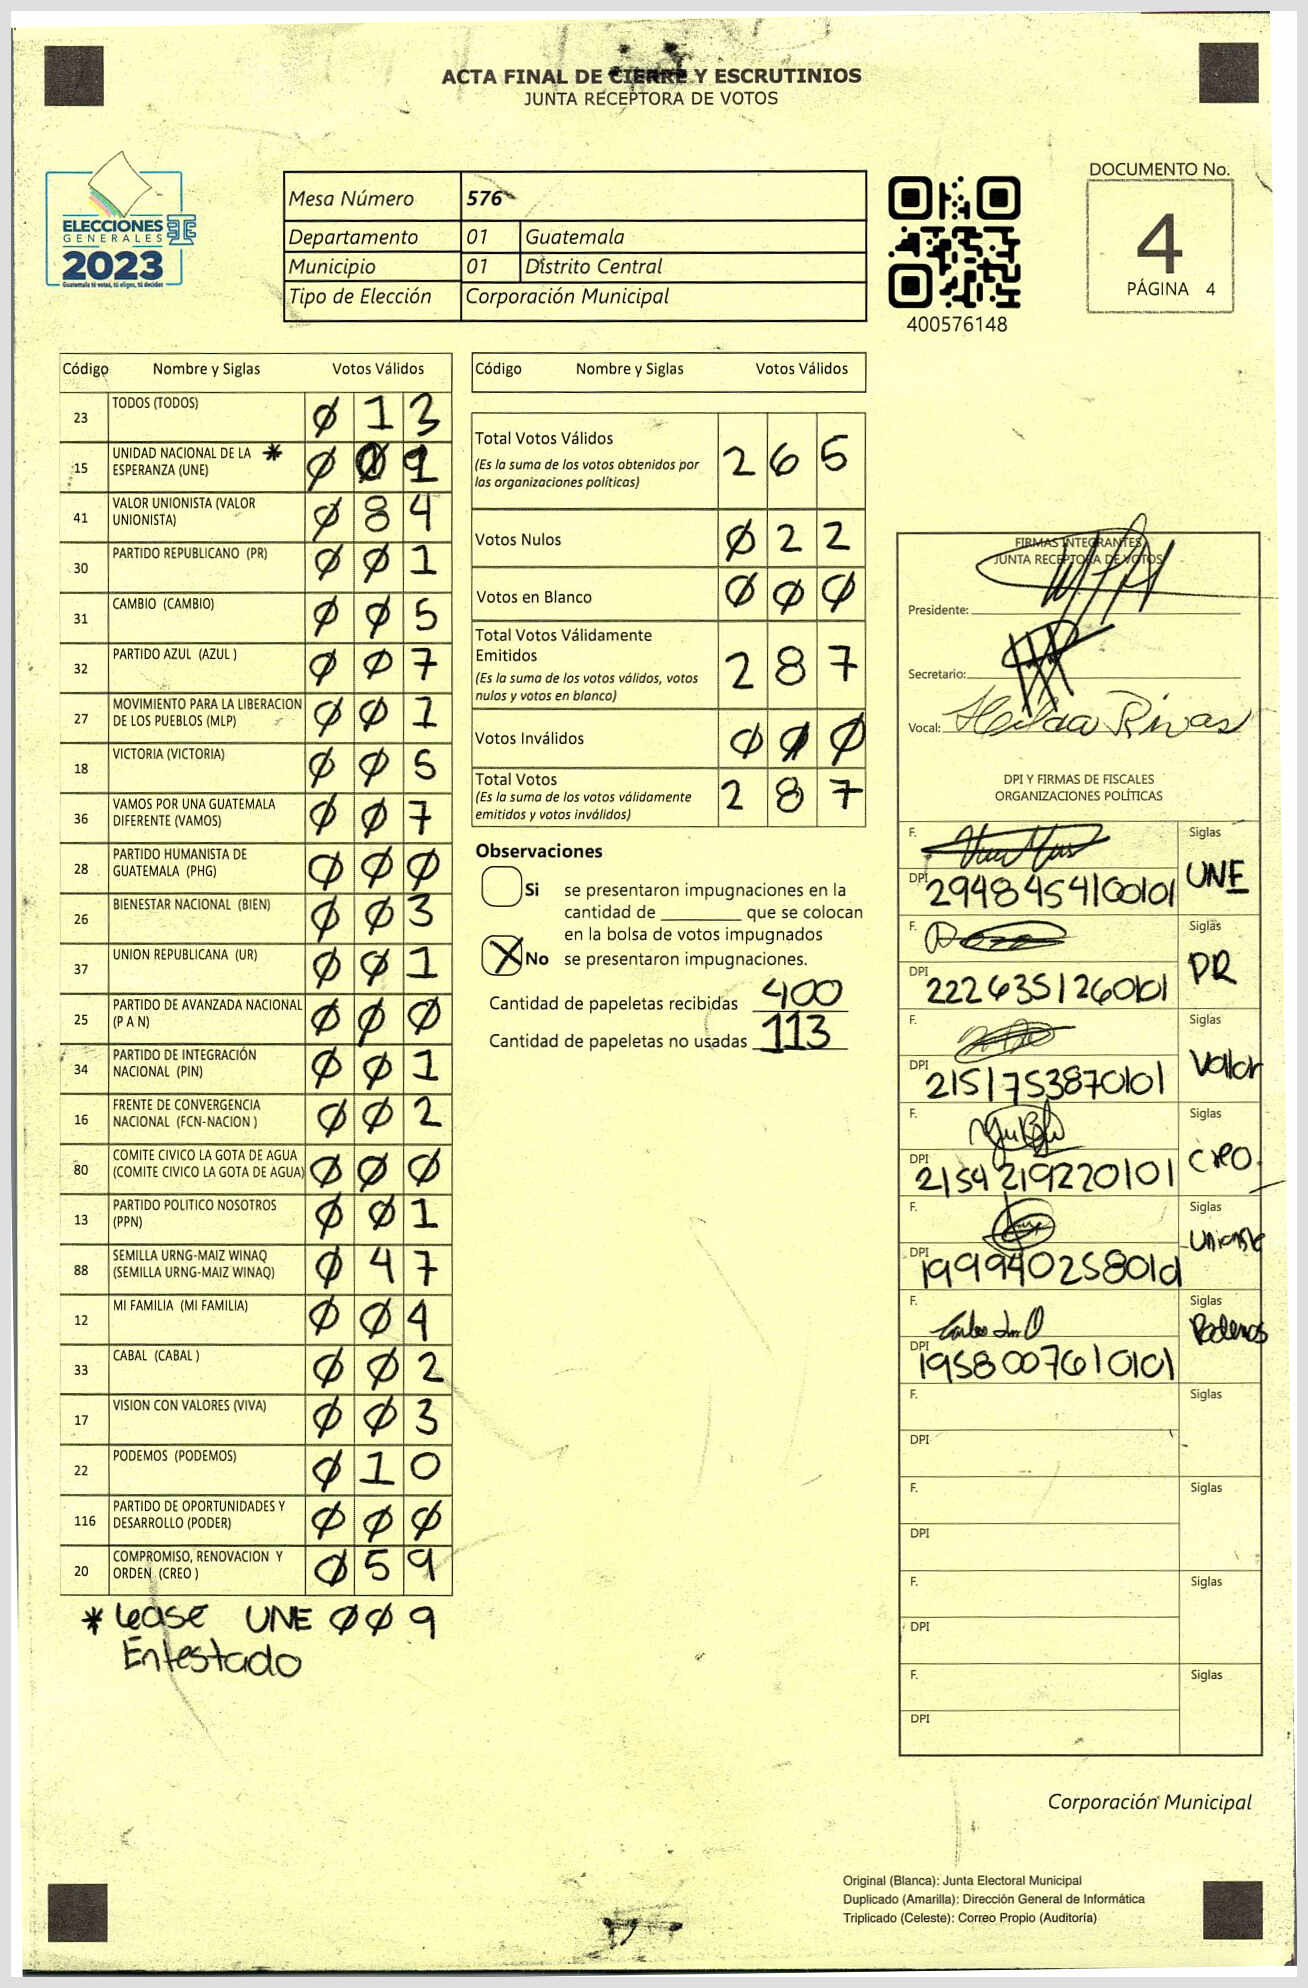 ACTA FINAL DE CIERRE Y ESCRUTINIOS
JUNTA RECEPTORA DE VOTOS
ELECCIONES
GENERALES
2023
Guatemala tú votas, tú eliges, tú decides
Mesa Número 576
Departamento 01 Guatemala
Municipio 01 Distrito Central
Tipo de Elección Corporación Municipal
400576148
DOCUMENTO No.
4
PÁGINA 4
Código Nombre y Siglas Votos Válidos
23 TODOS (TODOS) 0 1 3
15 UNIDAD NACIONAL DE LA * ESPERANZA (UNE)
41 VALOR UNIONISTA (VALOR UNIONISTA) 0 8 4
30 PARTIDO REPUBLICANO (PR) 0 0 1
31 CAMBIO (CAMBIO) 0 0 5
32 PARTIDO AZUL (AZUL ) 0 0 7
27 MOVIMIENTO PARA LA LIBERACION DE LOS PUEBLOS (MLP) 0 0 1
18 VICTORIA (VICTORIA) 0 0 5
36 VAMOS POR UNA GUATEMALA DIFERENTE (VAMOS) 0 0 7
28 PARTIDO HUMANISTA DE GUATEMALA (PHG) 0 0 0
26 BIENESTAR NACIONAL (BIEN) 0 0 3
37 UNION REPUBLICANA (UR) 0 0 1
25 PARTIDO DE AVANZADA NACIONAL (P A N) 0 0 0
34 PARTIDO DE INTEGRACIÓN NACIONAL (PIN) 0 0 1
16 FRENTE DE CONVERGENCIA NACIONAL (FCN-NACION ) 0 0 2
80 COMITE CIVICO LA GOTA DE AGUA (COMITE CIVICO LA GOTA DE AGUA) 0 0 0
13 PARTIDO POLITICO NOSOTROS (PPN) 0 0 1
88 SEMILLA URNG-MAIZ WINAQ (SEMILLA URNG-MAIZ WINAQ) 0 4 7
12 MI FAMILIA (MI FAMILIA) 0 0 4
33 CABAL (CABAL ) 0 0 2
17 VISION CON VALORES (VIVA) 0 0 3
22 PODEMOS (PODEMOS) 0 1 0
116 PARTIDO DE OPORTUNIDADES Y DESARROLLO (PODER) 0 0 0
20 COMPROMISO, RENOVACION Y ORDEN (CREO ) 0 5 9
* Lease UNE 0 0 9
Entestado
Código Nombre y Siglas Votos Válidos
Total Votos Válidos 2 6 5
(Es la suma de los votos obtenidos por
las organizaciones políticas)
Votos Nulos 0 2 2
Votos en Blanco 0 0 0
Total Votos Válidamente
Emitidos 2 8 7
(Es la suma de los votos válidos, votos
nulos y votos en blanco)
Votos Inválidos 0 0 0
Total Votos 2 8 7
(Es la suma de los votos válidamente
emitidos y votos inválidos)
Observaciones
Si se presentaron impugnaciones en la
cantidad de ________ que se colocan
en la bolsa de votos impugnados
X No se presentaron impugnaciones.
Cantidad de papeletas recibidas 400
Cantidad de papeletas no usadas 113
FIRMAS INTEGRANTES
JUNTA RECEPTORA DE VOTOS
Presidente:
Secretario:
Vocal: Hilda Rivas
DPI Y FIRMAS DE FISCALES
ORGANIZACIONES POLÍTICAS
F. Siglas
DPI 2948454100101 UNE
F. Siglas
DPI 2226351260101 PR
F. Siglas
DPI 2151753870101 Valor
F. Siglas
DPI 2154219220101 CREO.
F. Siglas
DPI Unionista
F. Siglas
DPI 1958007610101 Podemos
F. Siglas
DPI
F. Siglas
DPI
F. Siglas
DPI
F. Siglas
DPI
Corporación Municipal
Original (Blanca): Junta Electoral Municipal
Duplicado (Amarilla): Dirección General de Informática
Triplicado (Celeste): Correo Propio (Auditoría)